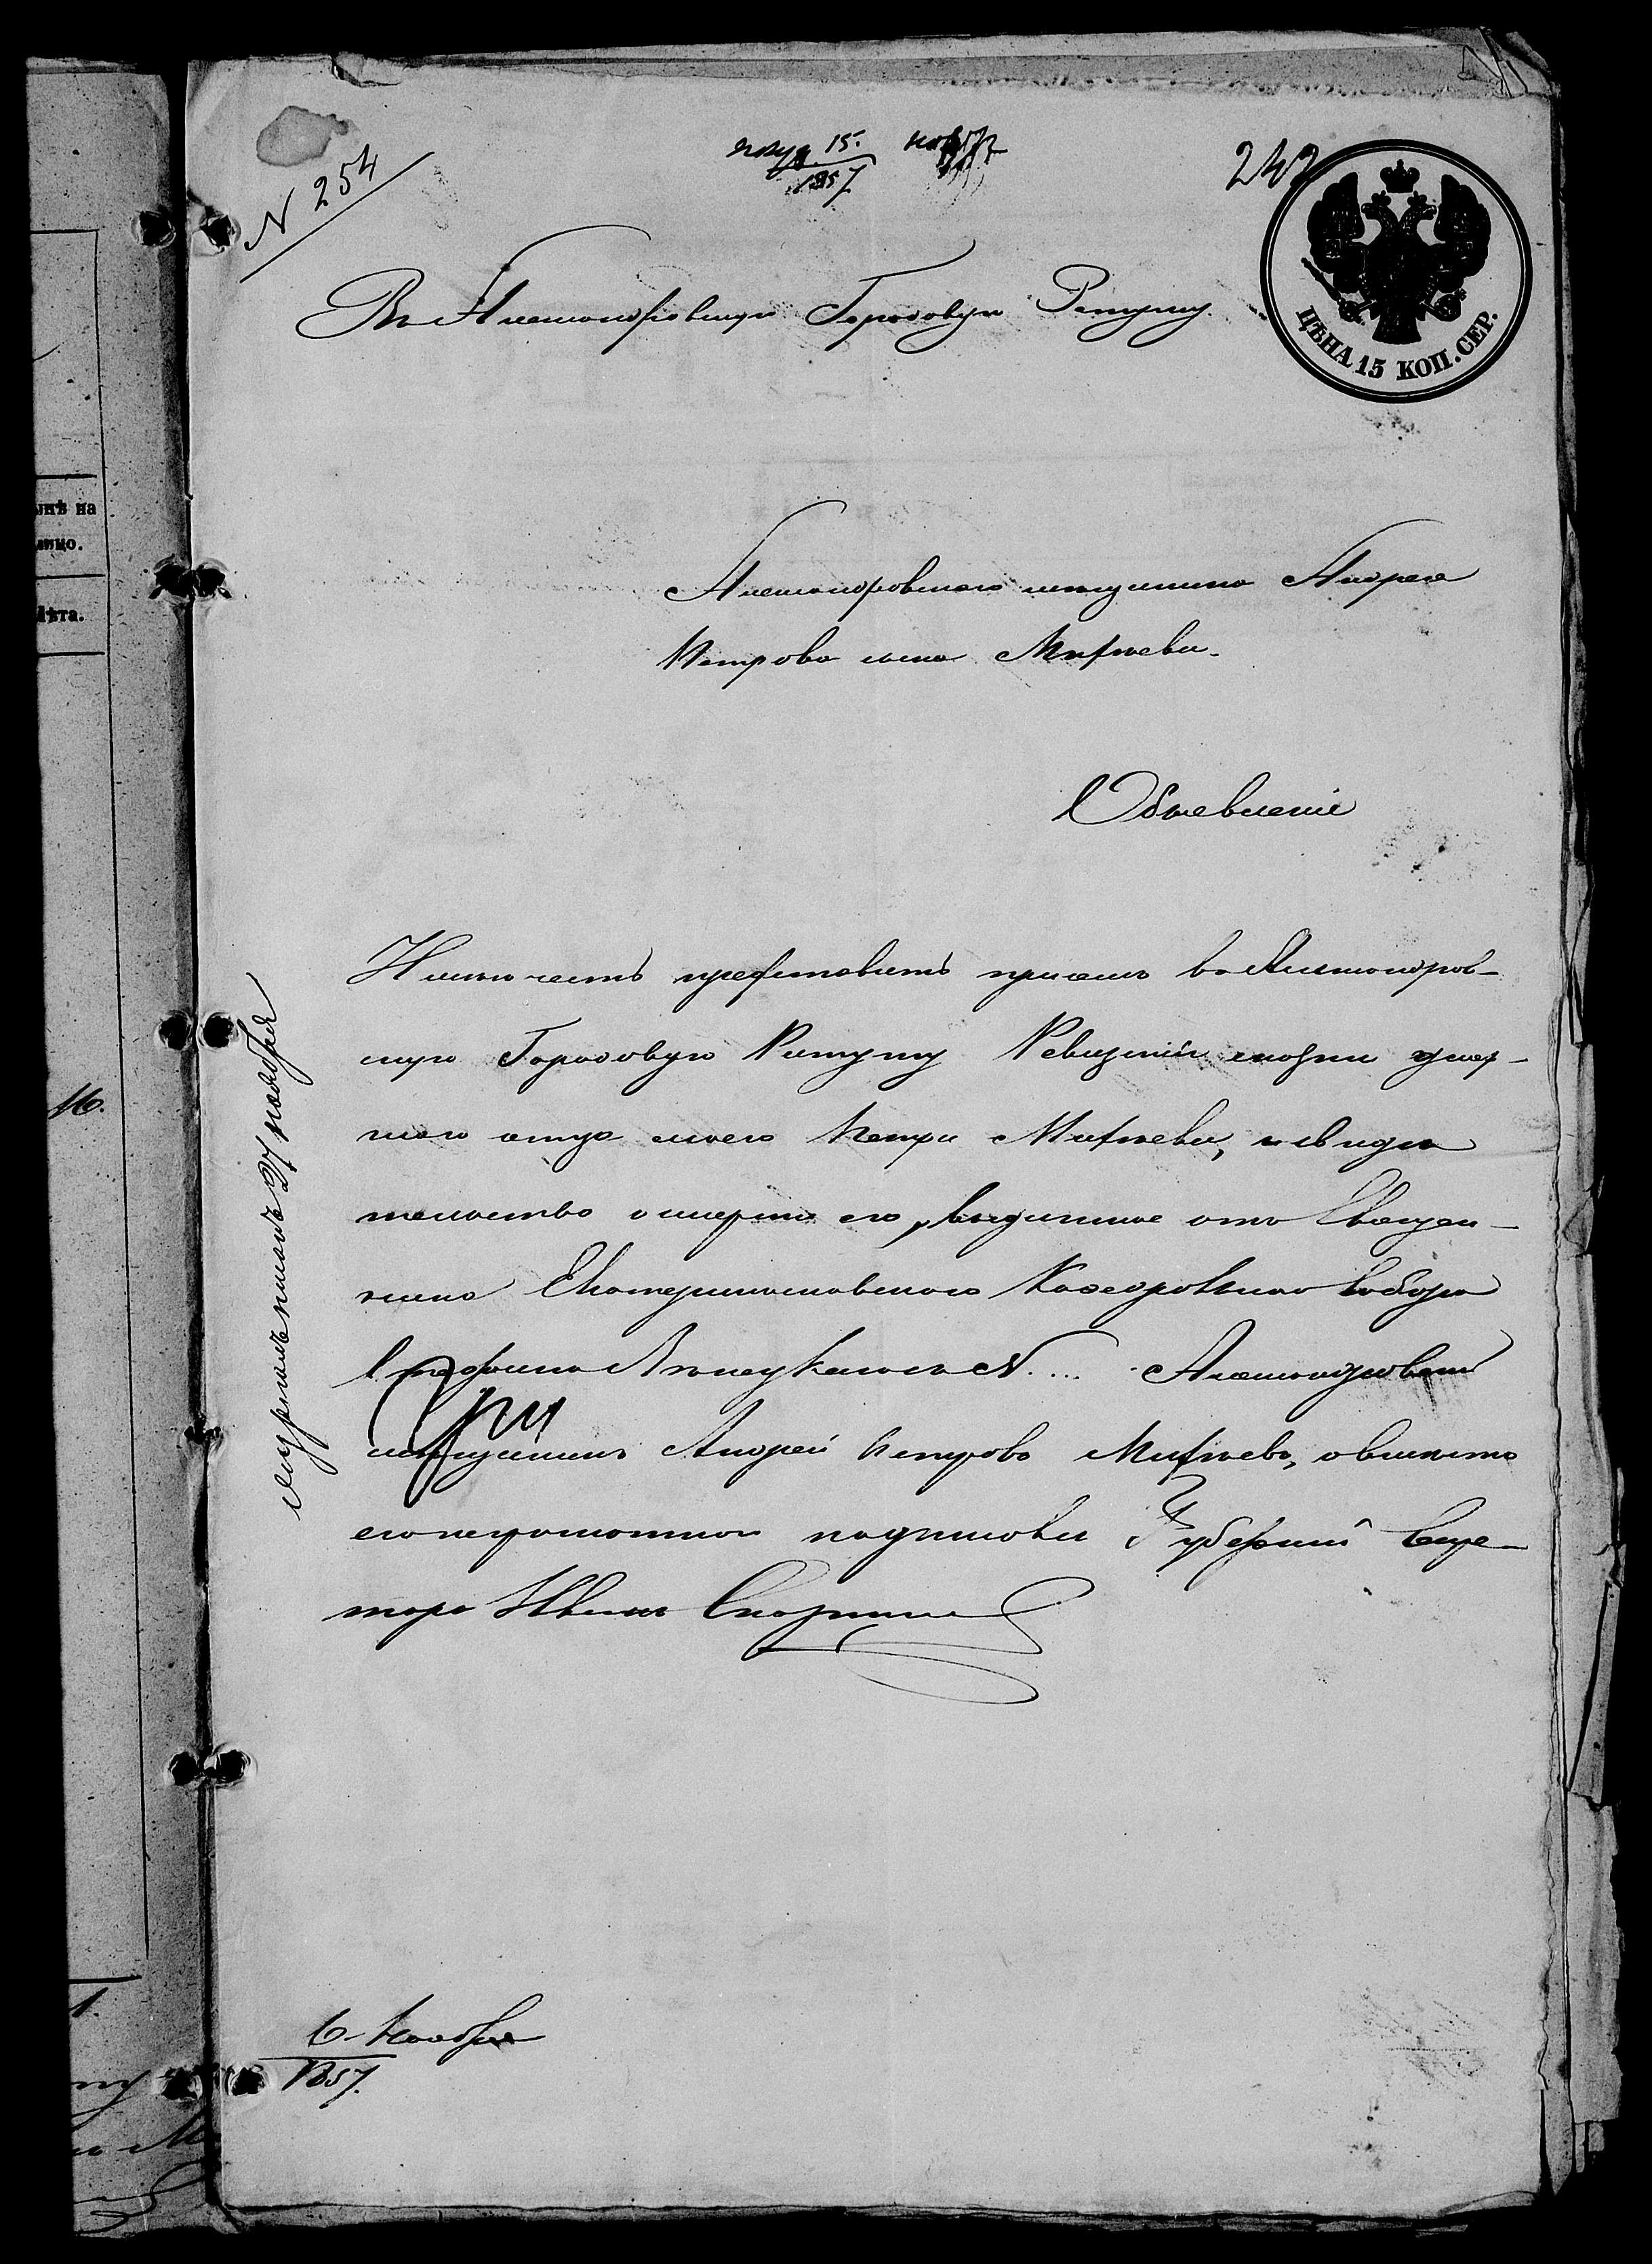 N 254
полу. 15. нояб.
1857
242
ЦѢНА 15 КОП. СЕР.
Въ Александровскую Городовую Ратушу.
Александровского мещанина Андрея
Петрова сына
Объевление
Имею честь представить присемъ во Александров-
скую Городовую Ратушу Ревизкии сказки умер-
шаго отца моего Петра и свиде
тельство о смерти его, выданное отъ Священ-
ника Екатеринославского Кафедрольного Собора
Александровски
мещанинъ Андрей Петровъ а вместо
его неграмотного подписовсе Губерский Секре-
таръ Иванъ
27 ноября
6 Ноября
1857.
лицо.
Лѣта.
16.
1.